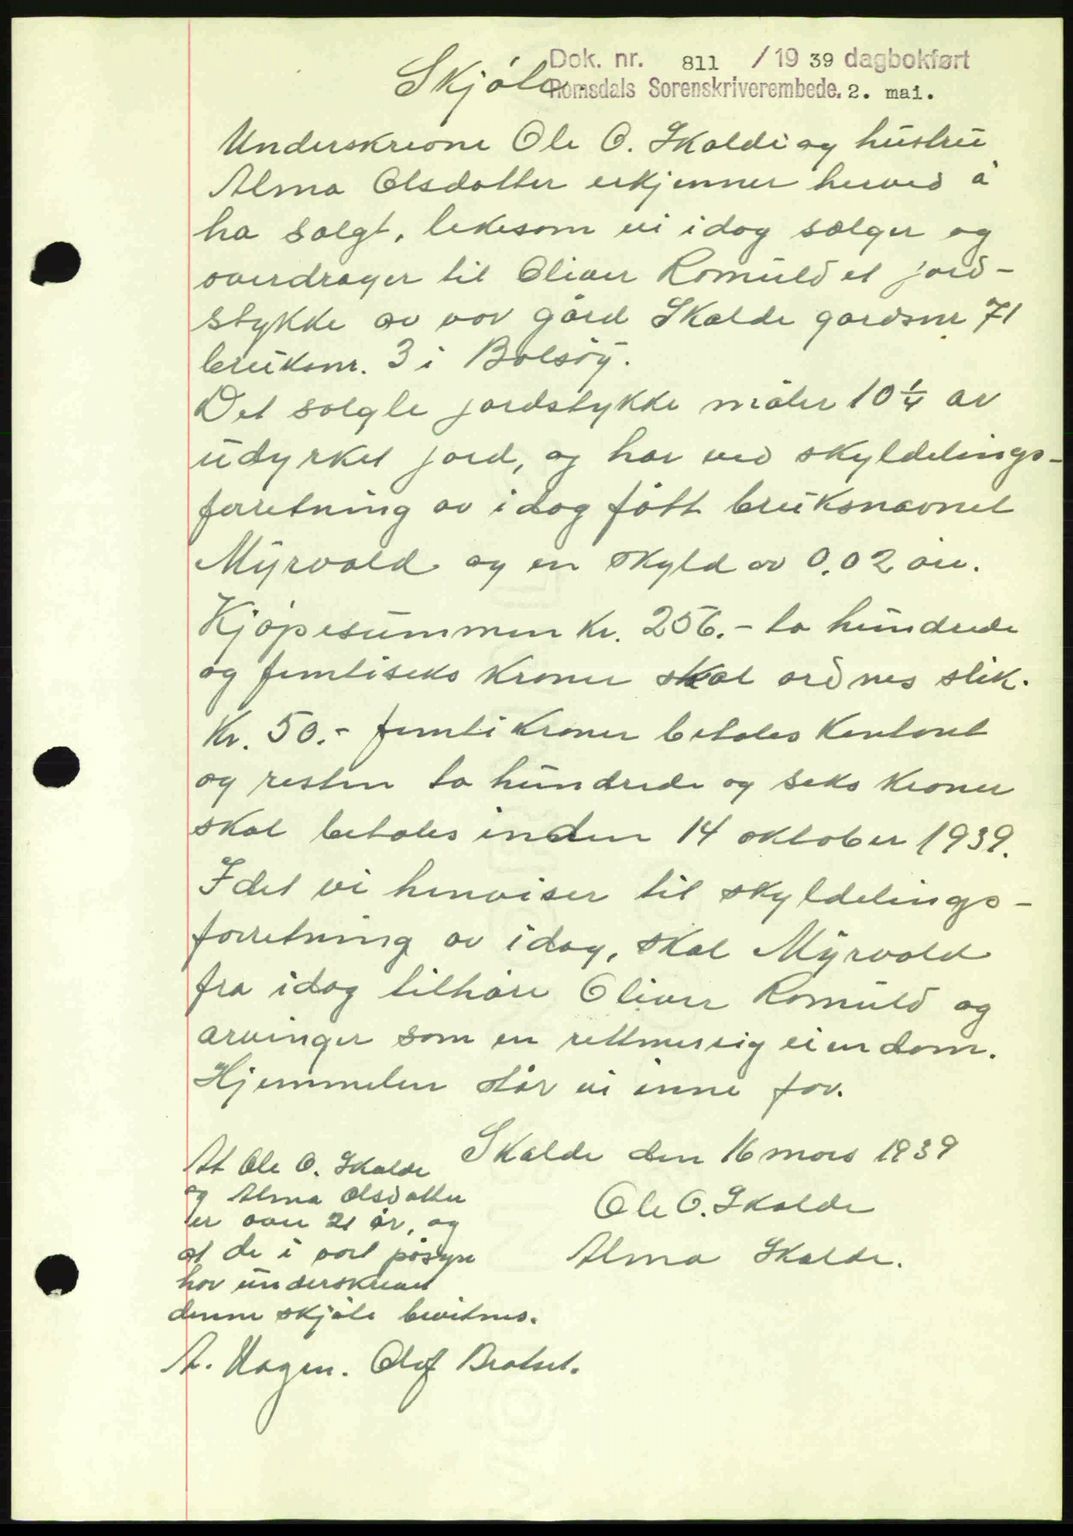 Dok. nr. 811 / 1939 dagbokført
Romsdals Sorenskriverembede. 2. mai.
Skjöte.
Underskrevne Ole O. Skalde og hustru
Alma Olsdatter erkjenner herved å
ha solgt, likesom vi idag sælger og
overdrager til Oliver Romuld et jord-
stykke av vor gård Skalde gardsnr 71
bruksnr. 3 i Bolsöy.
Det solgte jordstykke måler 10 1/4 ar
udyrket jord, og har ved skyldelings-
forretning av idag fått bruksnavnet
Myrvold og en skyld av 0,02 öre.
Kjöpesummen kr. 256.- to hundrede
og femtiseks kroner skal ordnes slik.
Kr. 50.- femti kroner betales kontant
og resten to hundrede og seks kroner
skal betales inden 14 oktober 1939.
Idet vi henviser til skyldelings-
forretning av idag, skal Myrvold
fra idag tilhöre Oliver Romuld og
arvinger som en rettmessig eiendom.
Hjemmelen står vi inne for.
Skalde den 16 mars 1939
Ole O. Skalde
Alma Skalde.
At Ole O. Skalde
og Alma Olsdatter
er over 21 år, og
at de i vort påsyn
har underskrevet
denne skjöte bevitnes.
A. Hagen. Olof Bratset.